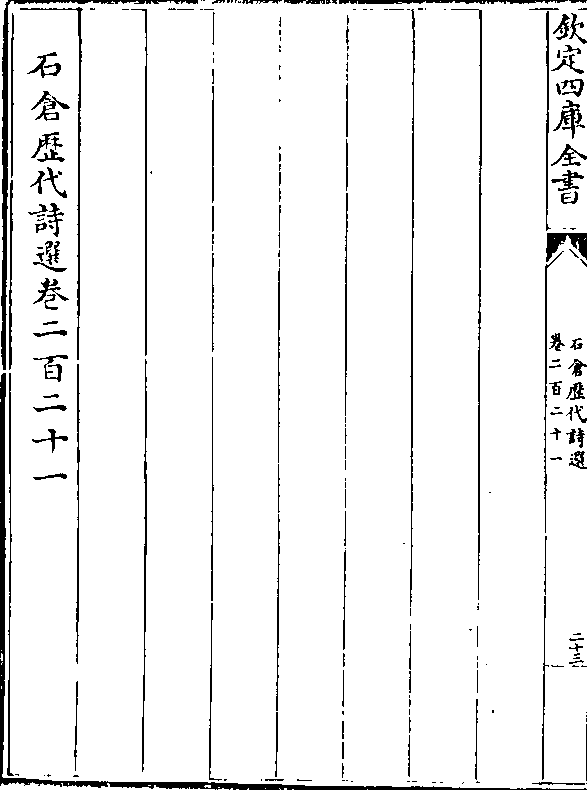 欽定四庫全書
石倉歷代詩選
卷二百二十一
二十三
石倉歷代詩選卷二百二十一